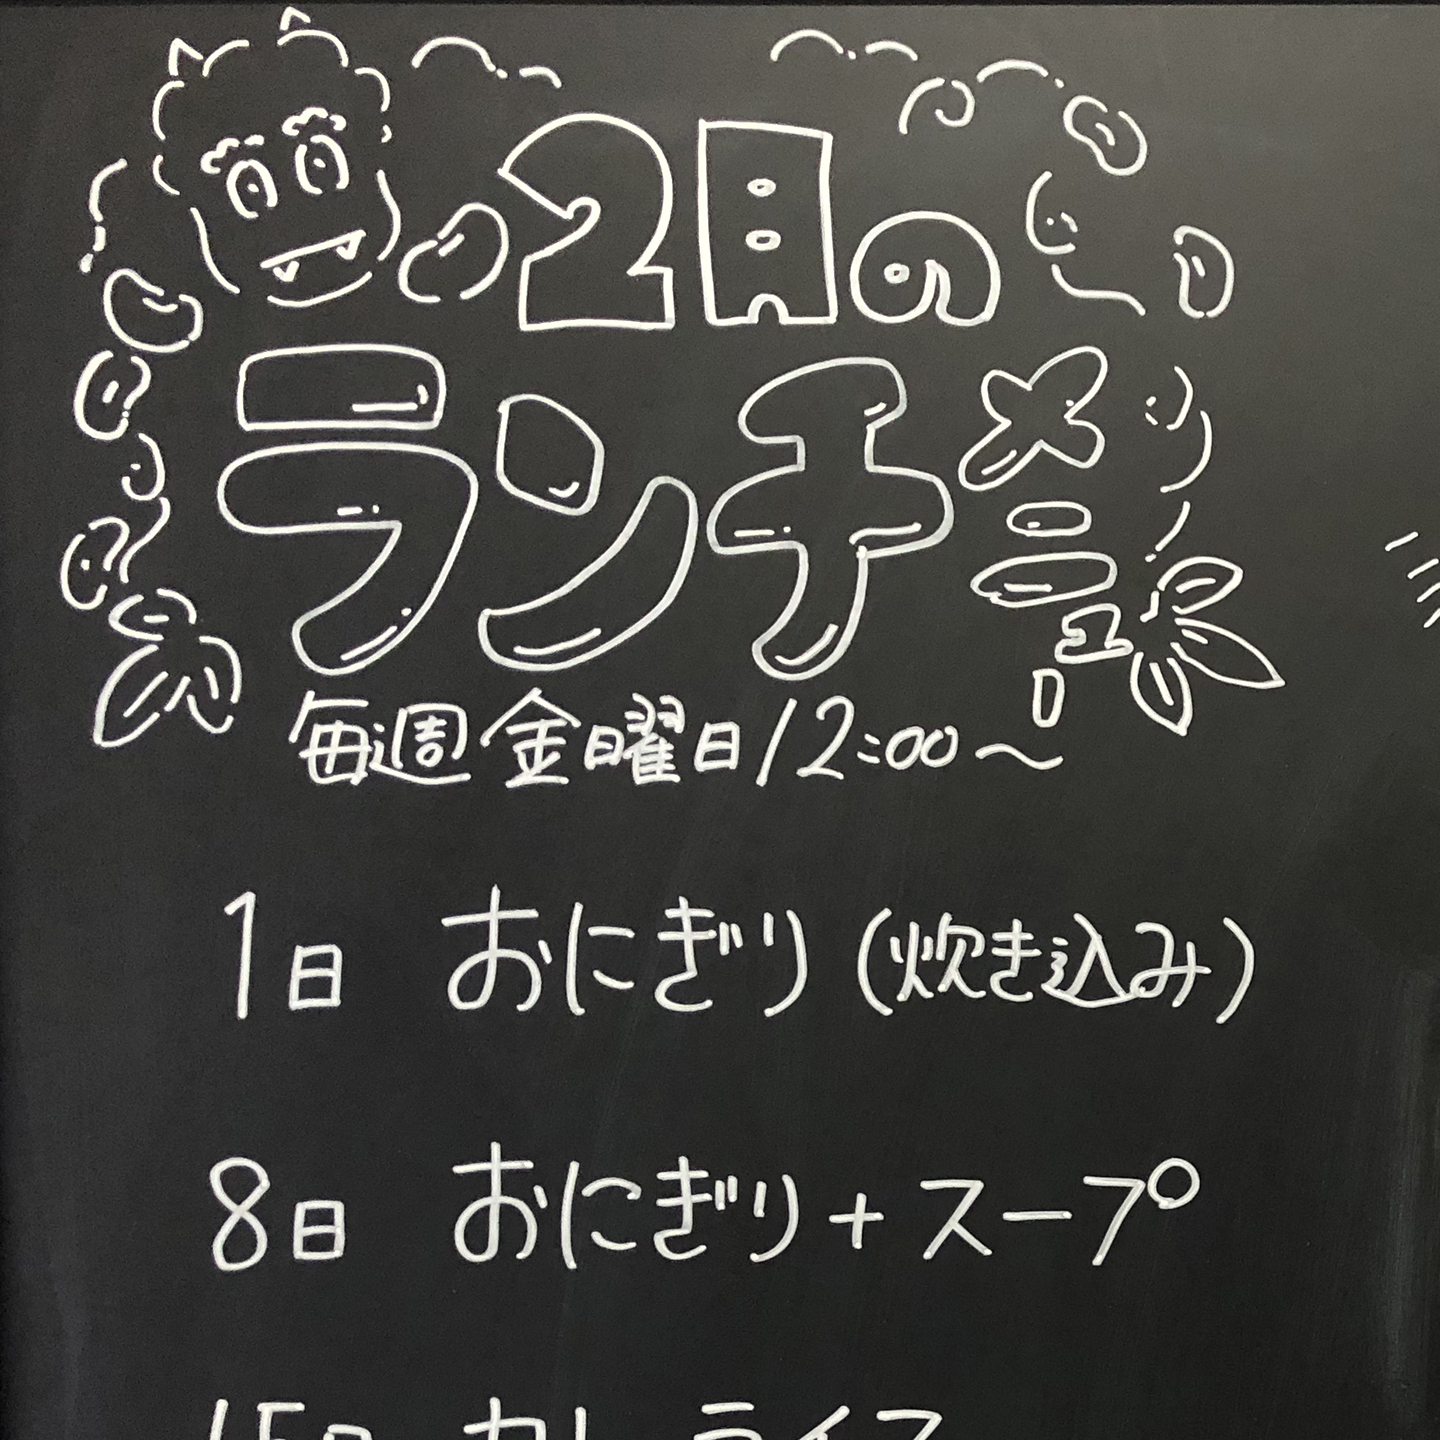 2月の
ランチメニュー
毎週金曜日12:00〜
1日 おにぎり(炊き込み)
8日 おにぎり+スープ
15日 カレーライス